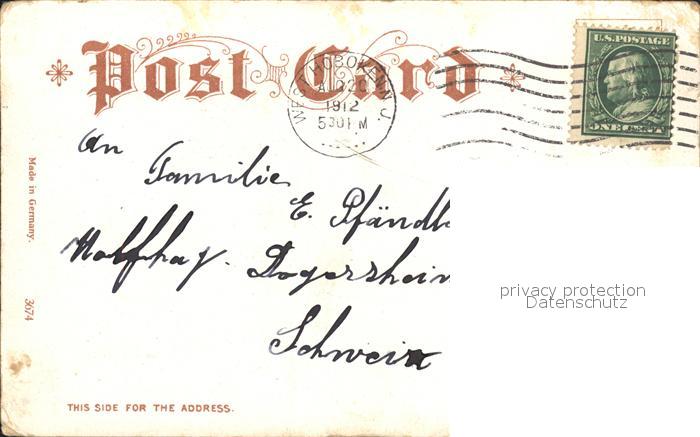 Post Card
U.S. POSTAGE
ONE CENT
WEST HOBOKEN N.J.
AUG 20
1912
530 P M
An
Familie
E. Pfändl
Wolfhag. Degersheim
Schweiz
Made in Germany.
3674
privacy protection
Datenschutz
THIS SIDE FOR THE ADDRESS.